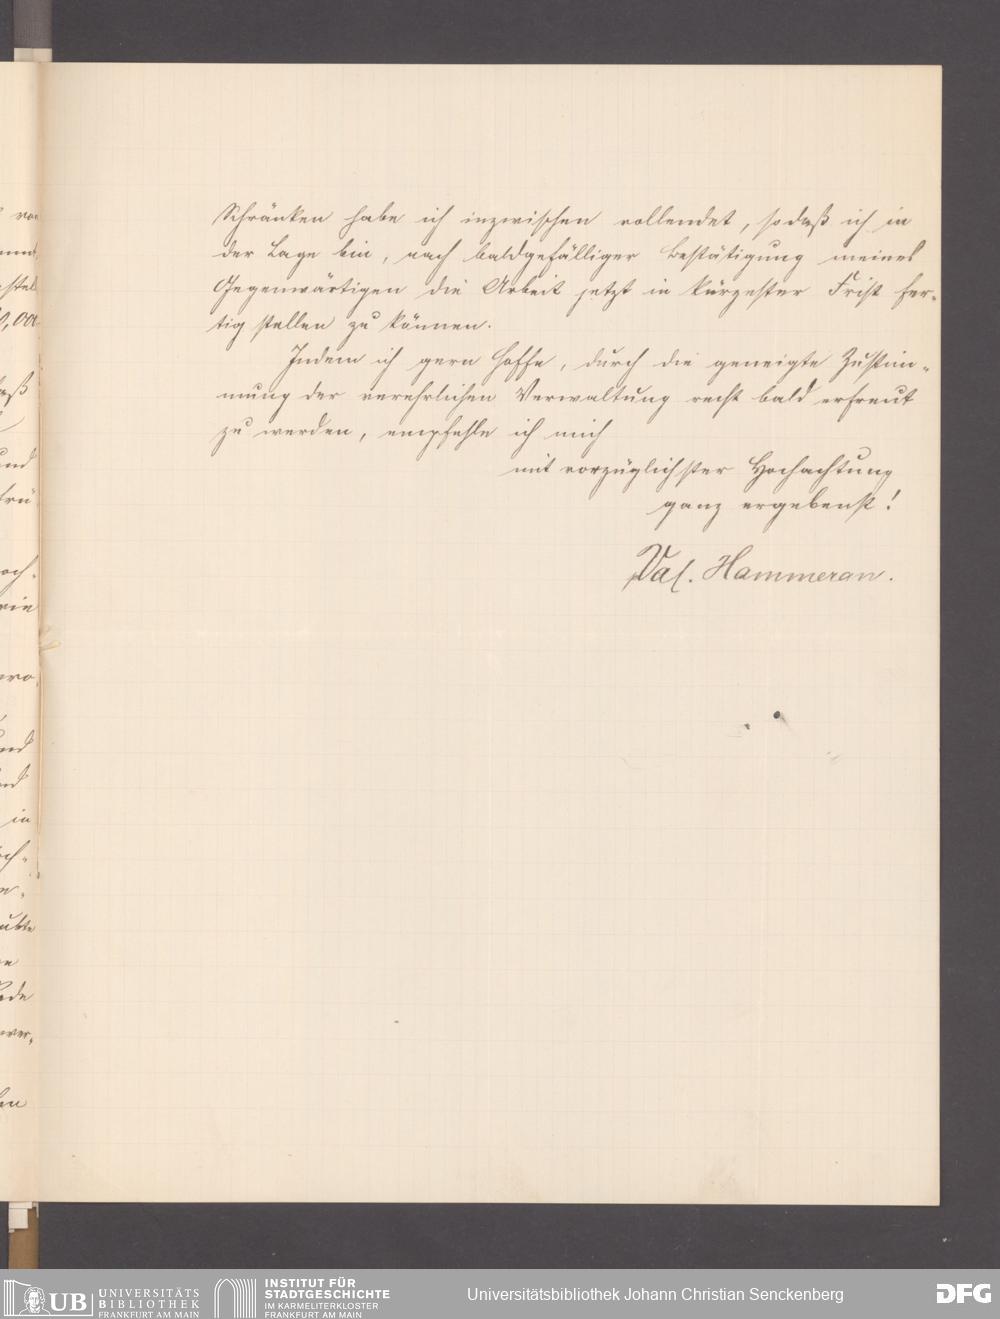 Schränken habe ich inzwischen vollendet, sodaß ich in
der Lage bin, nach baldgefälliger Bestätigung meines
Gegenwärtigen die Arbeit jetzt in kürzester Frist fer-
tig stellen zu können.
Indem ich gern hoffe, durch die geneigte Zustim-
mung der verehrlichen Verwaltung recht bald erfreut
zu werden, empfehle ich mich
mit vorzüglichster Hochachtung
ganz ergebenst!
Val. Hammeran.
UB UNIVERSITÄTS
BIBLIOTHEK
FRANKFURT AM MAIN
INSTITUT FÜR
STADTGESCHICHTE
IM KARMELITERKLOSTER
FRANKFURT AM MAIN
Universitätsbibliothek Johann Christian Senckenberg
DFG